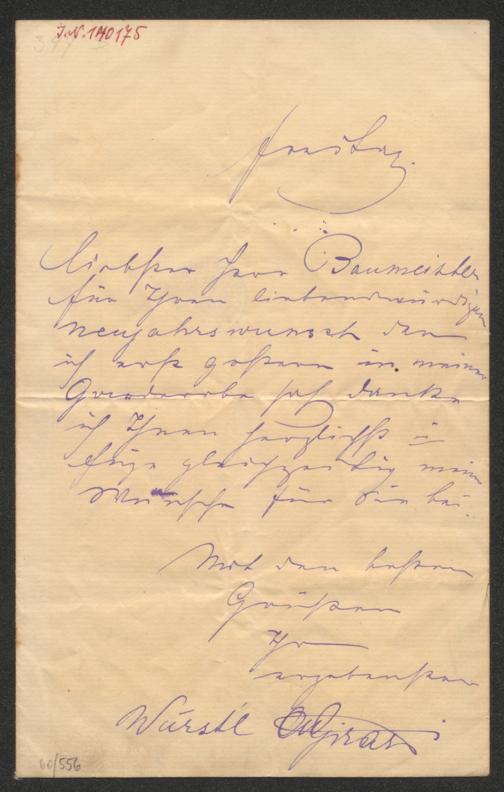 J.N. 140175
Freitag.
Liebster Herr Baumeister
für Ihren liebenswürdigen
Neujahrswunsch den
ich erst gestern in meiner
Garderobe sah danke
ich Ihnen herzlichst u
füge gleichzeitig meine
Wünsche für Sie bei.
Mit den besten
Grüßen
Ihr
ergebenster
Würstl Girardi
60/556